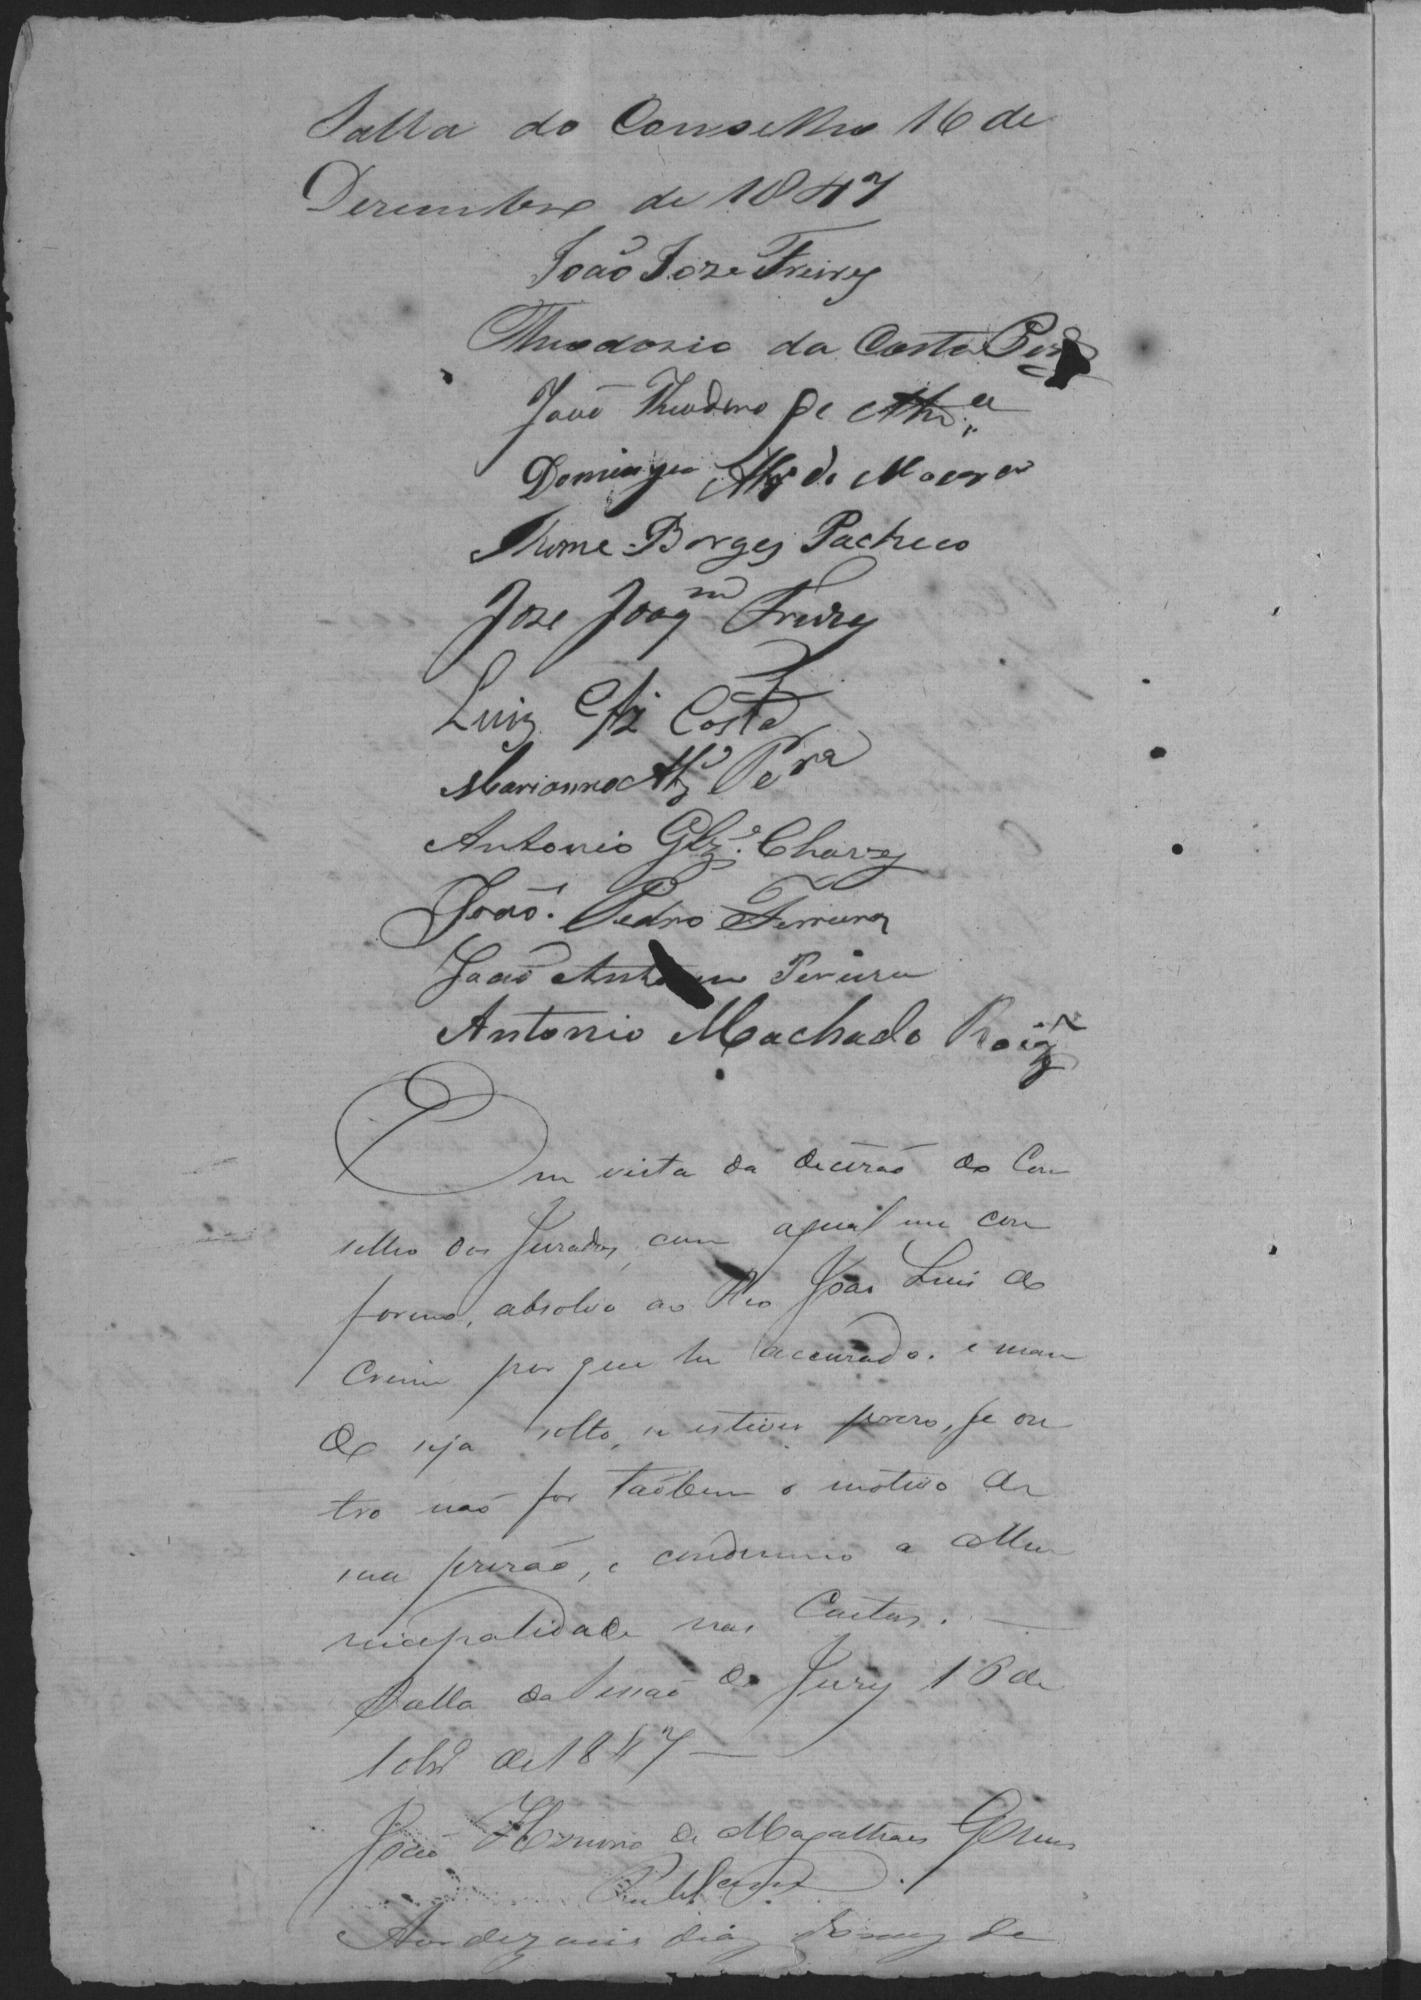 Salla do Conselho 16 de
Dezembro de 1847
João Joze Freires
Theodozio da Costa
João Theodoro de
Domingos de Moraes
Thome Borges Pacheco
Joze Joaqm Freires
Luiz Costa
Marianno Pera
Antonio Glz. Chaves
João Pedro Ferreira
João Antonio Pereira
Antonio Machado Roiz
Em vista da decizaõ do Con
selho dos Jurados, com aqual me con
formo, absolvo ao Reo João Luis do
Crime por que he accuzado. e man
do seja solto, se estiver prezo, se ou
tro naõ for taõbem o motivo da
sua prizaõ, e condemno a Mu
nicipalidade nas Custas.
Salla da Sessaõ do Jury 16 de
10br de 1847
João de Magalhaes Gomes
Publicação
Aos dezaseis dias do mez de